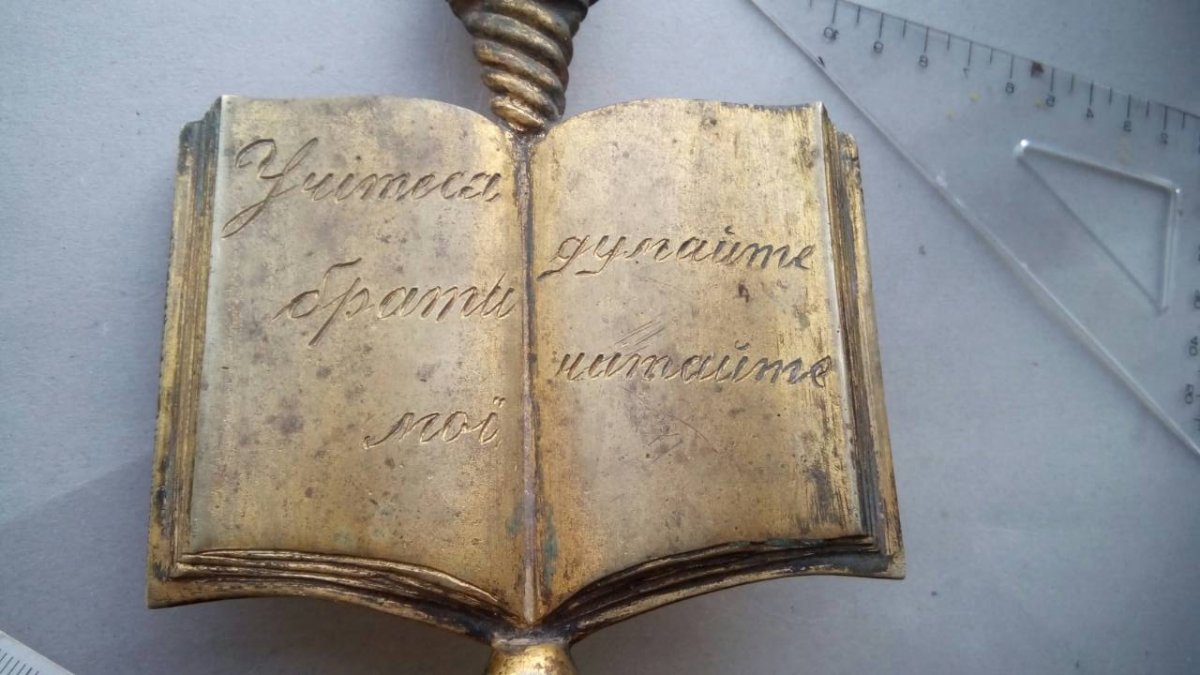 Учітеся
брати
мої
думайте
читайте